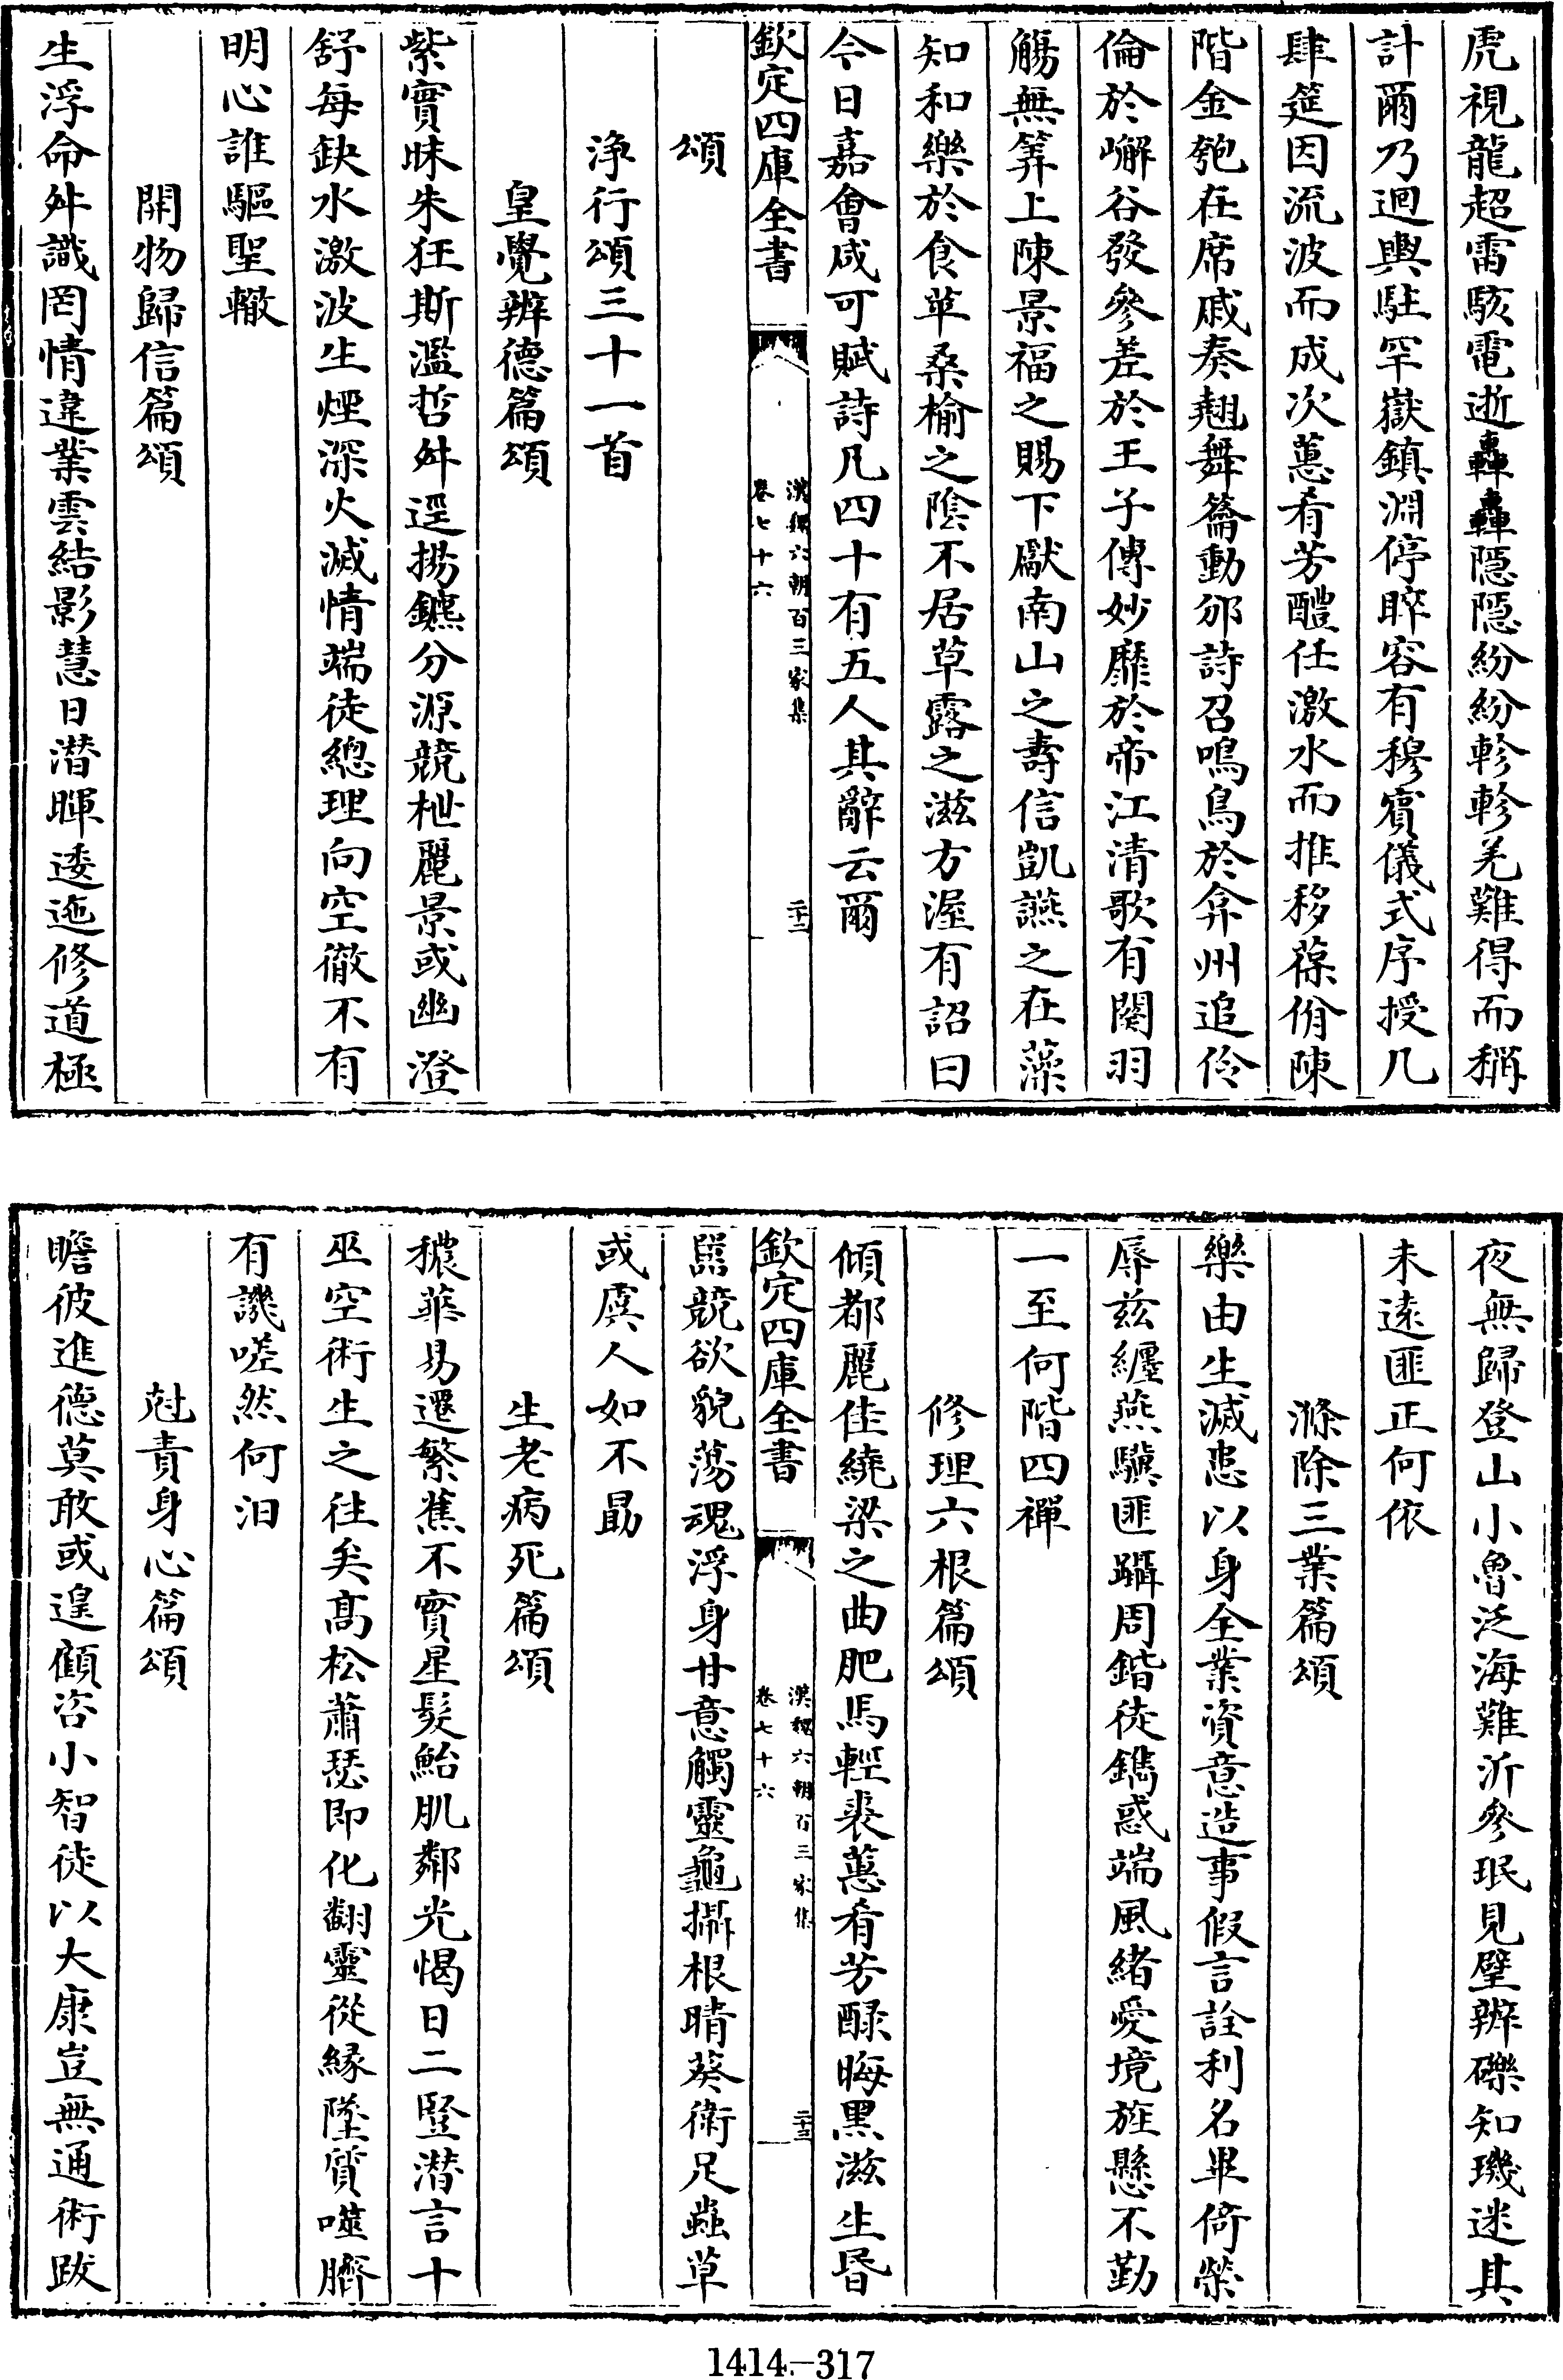 虎視龍超雷駭電逝轟轟隱隱紛紛軫軫羌難得而稱
計爾乃迴輿駐罕嶽鎮淵停睟容有穆賓儀式序授几
肆筵因流波而成次蕙肴芳醴任激水而推移葆佾陳
階金匏在席戚奏翹舞籥動邠詩召鳴鳥於弇州追伶
倫於嶰谷發參差於王子傳妙靡於帝江清歌有闋羽
觴無筭上陳景福之賜下獻南山之壽信凱讌之在藻
知和樂於食苹桑榆之陰不居草露之滋方渥有詔曰
今日嘉會咸可賦詩凡四十有五人其辭云爾
欽定四庫全書
漢魏六朝百三家集
卷七十六
二十二
頌
淨行頌三十一首
皇覺辨德篇頌
紫實昧朱狂斯濫哲舛逕揚鑣分源競枻麗景或幽澄
舒每缺水激波生煙深火滅情端徒總理向空徹不有
明心誰驅聖轍
開物歸信篇頌
生浮命舛識罔情違業雲結影慧日潛暉逶迤修道極
夜無歸登山小魯泛海難沂參珉見璧辨礫知璣迷其
未遠匪正何依
滌除三業篇頌
樂由生滅患以身全業資意造事假言詮利名畢倚榮
辱茲纏燕驥匪躡周鍇徒鐫惑端風緒愛境旌懸不勤
一至何階四禪
修理六根篇頌
傾都麗佳繞梁之曲肥馬輕裘蕙肴芳醁晦黑滋生昬
欽定四庫全書
漢魏六朝百三家集
卷七十六
二十三
嚚競欲貌蕩魂浮身甘意觸靈龜攝根晴葵衛足蟲草
或虞人如不勗
生老病死篇頌
穠華易遷繁蕉不實星髮鮐肌鄰光愒日二豎潛言十
巫空術生之往矣髙松蕭瑟即化翻靈從緣墜質噬臍
有譏嗟然何汨
尅責身心篇頌
瞻彼進德莫敢或遑顧咨小智徒以大康豈無通術跋
1414-317